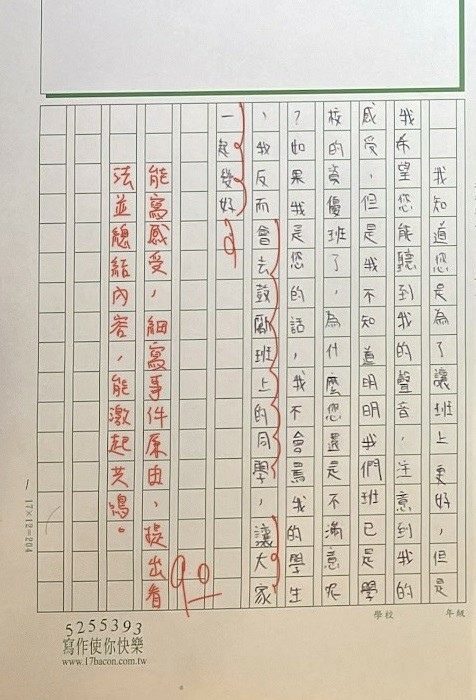 我知道您是為了讓班上更好，但是
我希望您能聽到我的聲音，注意到我的
感受，但是我不知道明明我們班已是學
校的資優班了，為什麼您還是不滿意呢
？如果我是您的話，我不會罵我的學生
，我反而會去鼓勵班上的同學，讓大家
一起變好。
90
能寫感受，細寫事件原由，提出看
法並總結內容，能激起共鳴。
17×12=204
學校
年級
5255393
寫作使你快樂
www.17bacon.com.tw